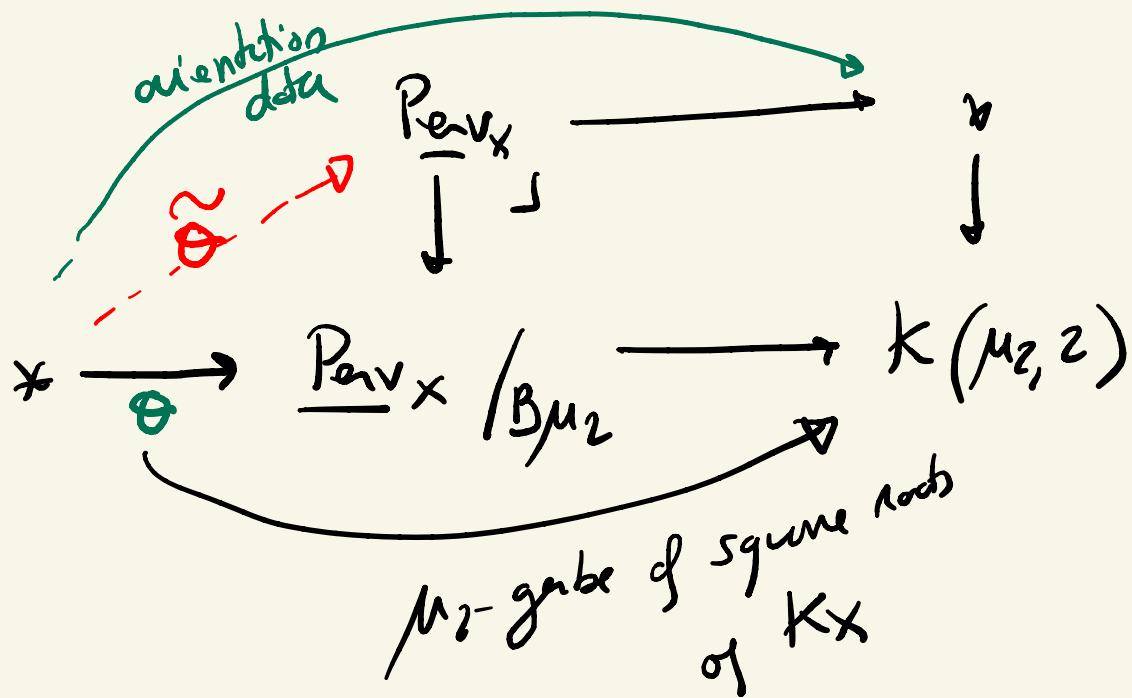 orientation
data
Perv_X
*
Θ̃
* Θ
Perv_X /Bμ₂
K(μ₂, 2)
μ₂-gerbe of square roots
of K_X